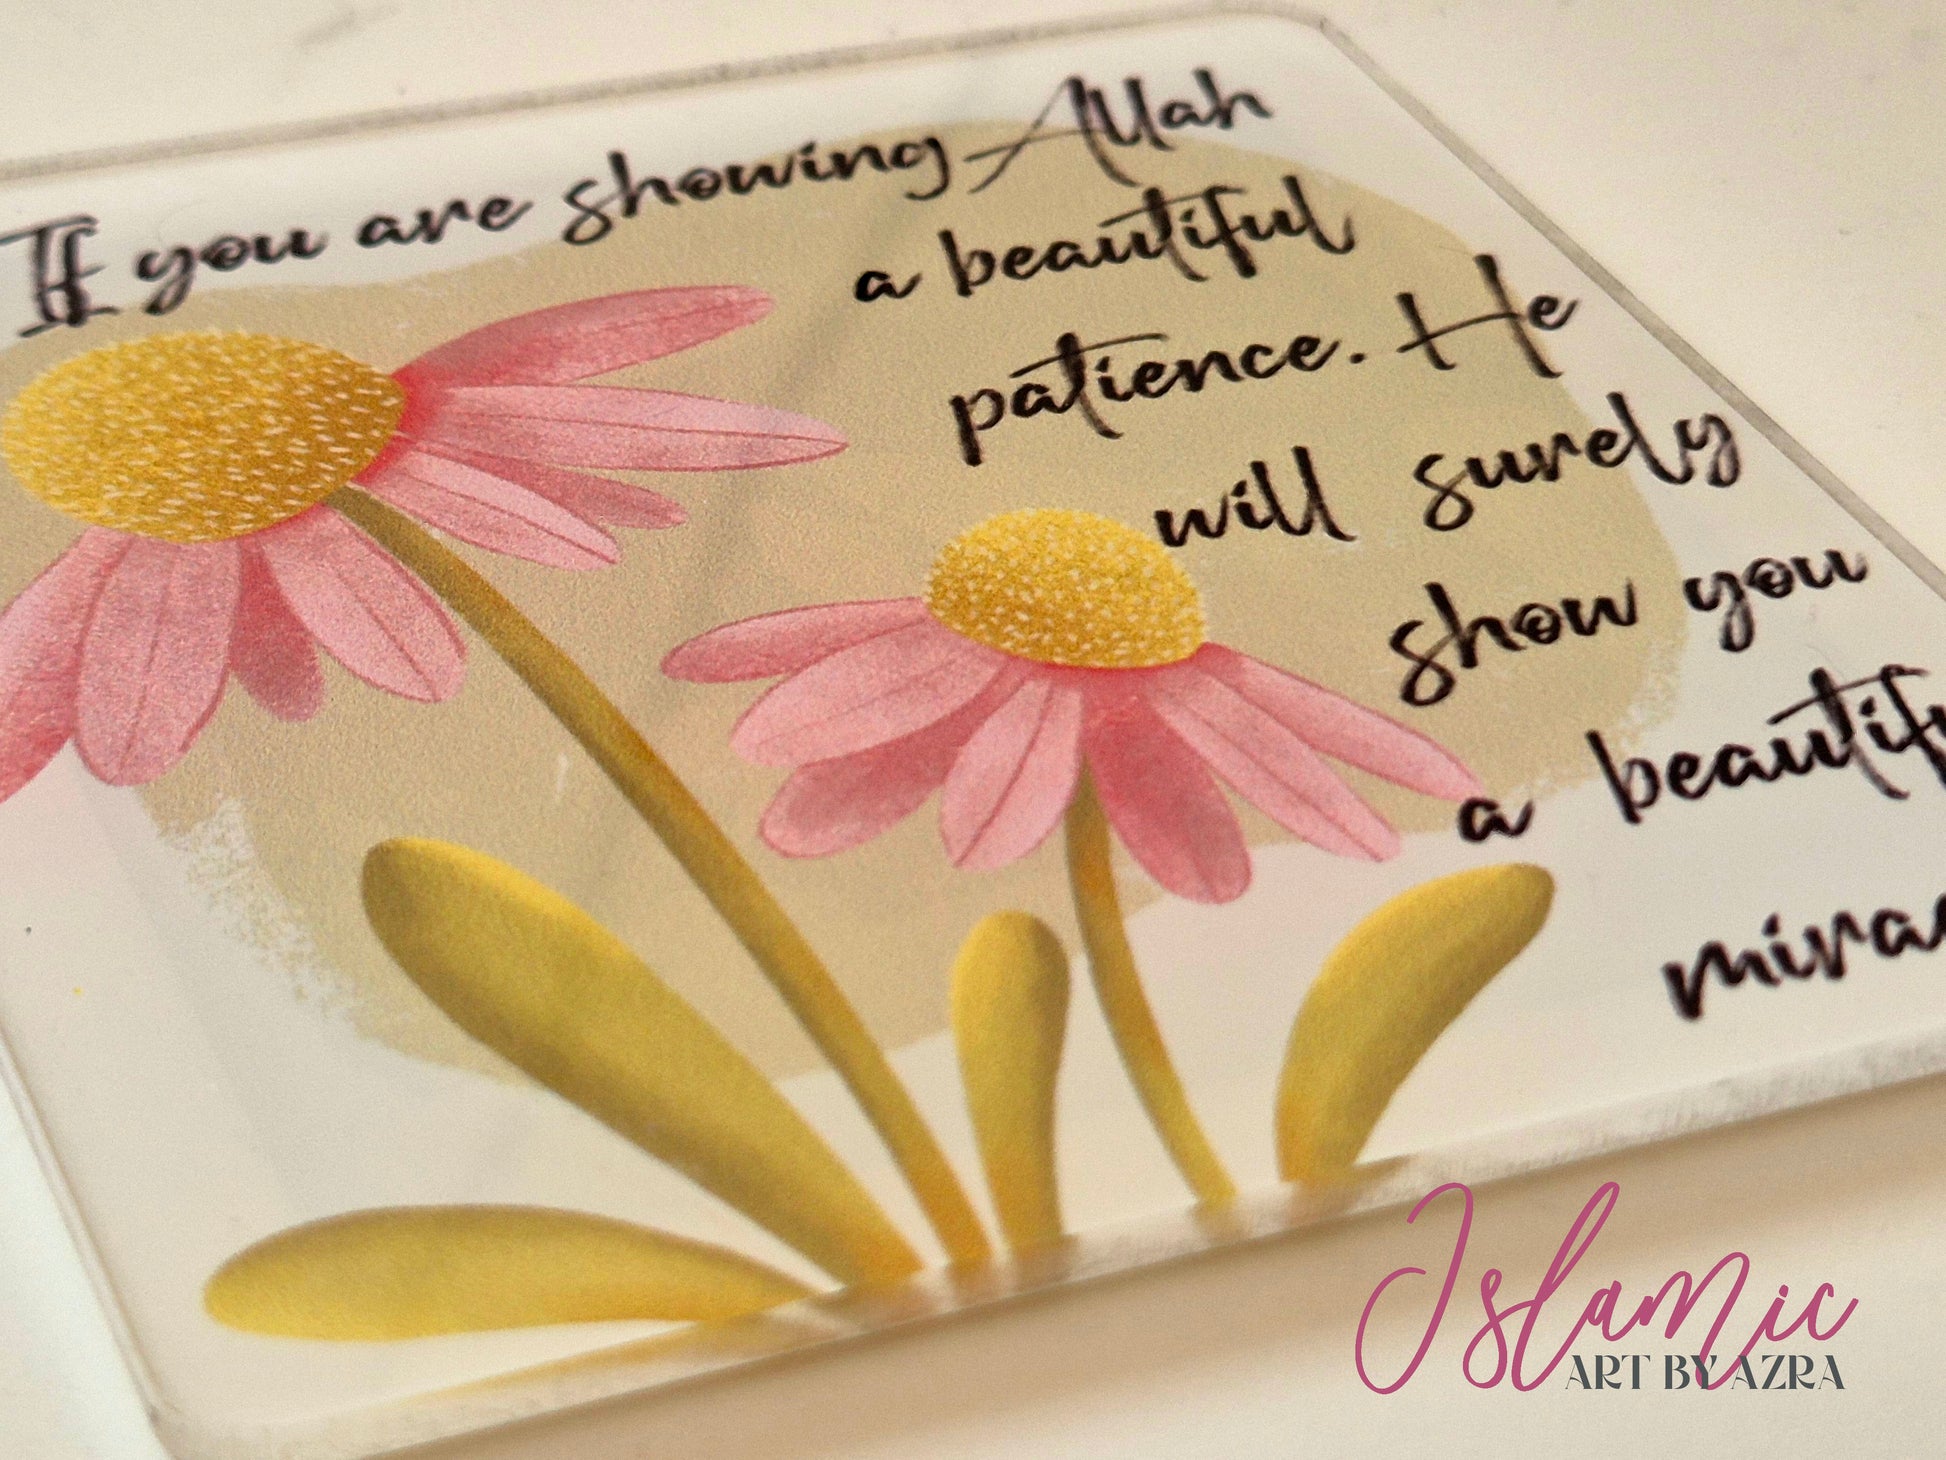 If you are showing Allah
a beautiful
patience. He
will surely
show you
a
Islamic
ART BY AZRA